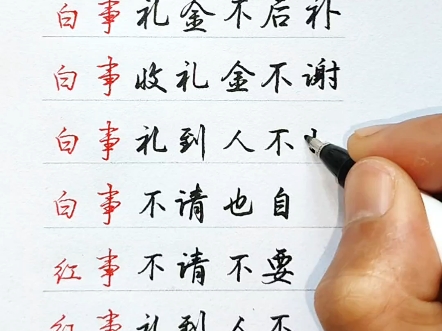 白事礼金不后补
白事收礼金不谢
白事礼到人不
白事不请也自
红事不请不要
红事礼到人不